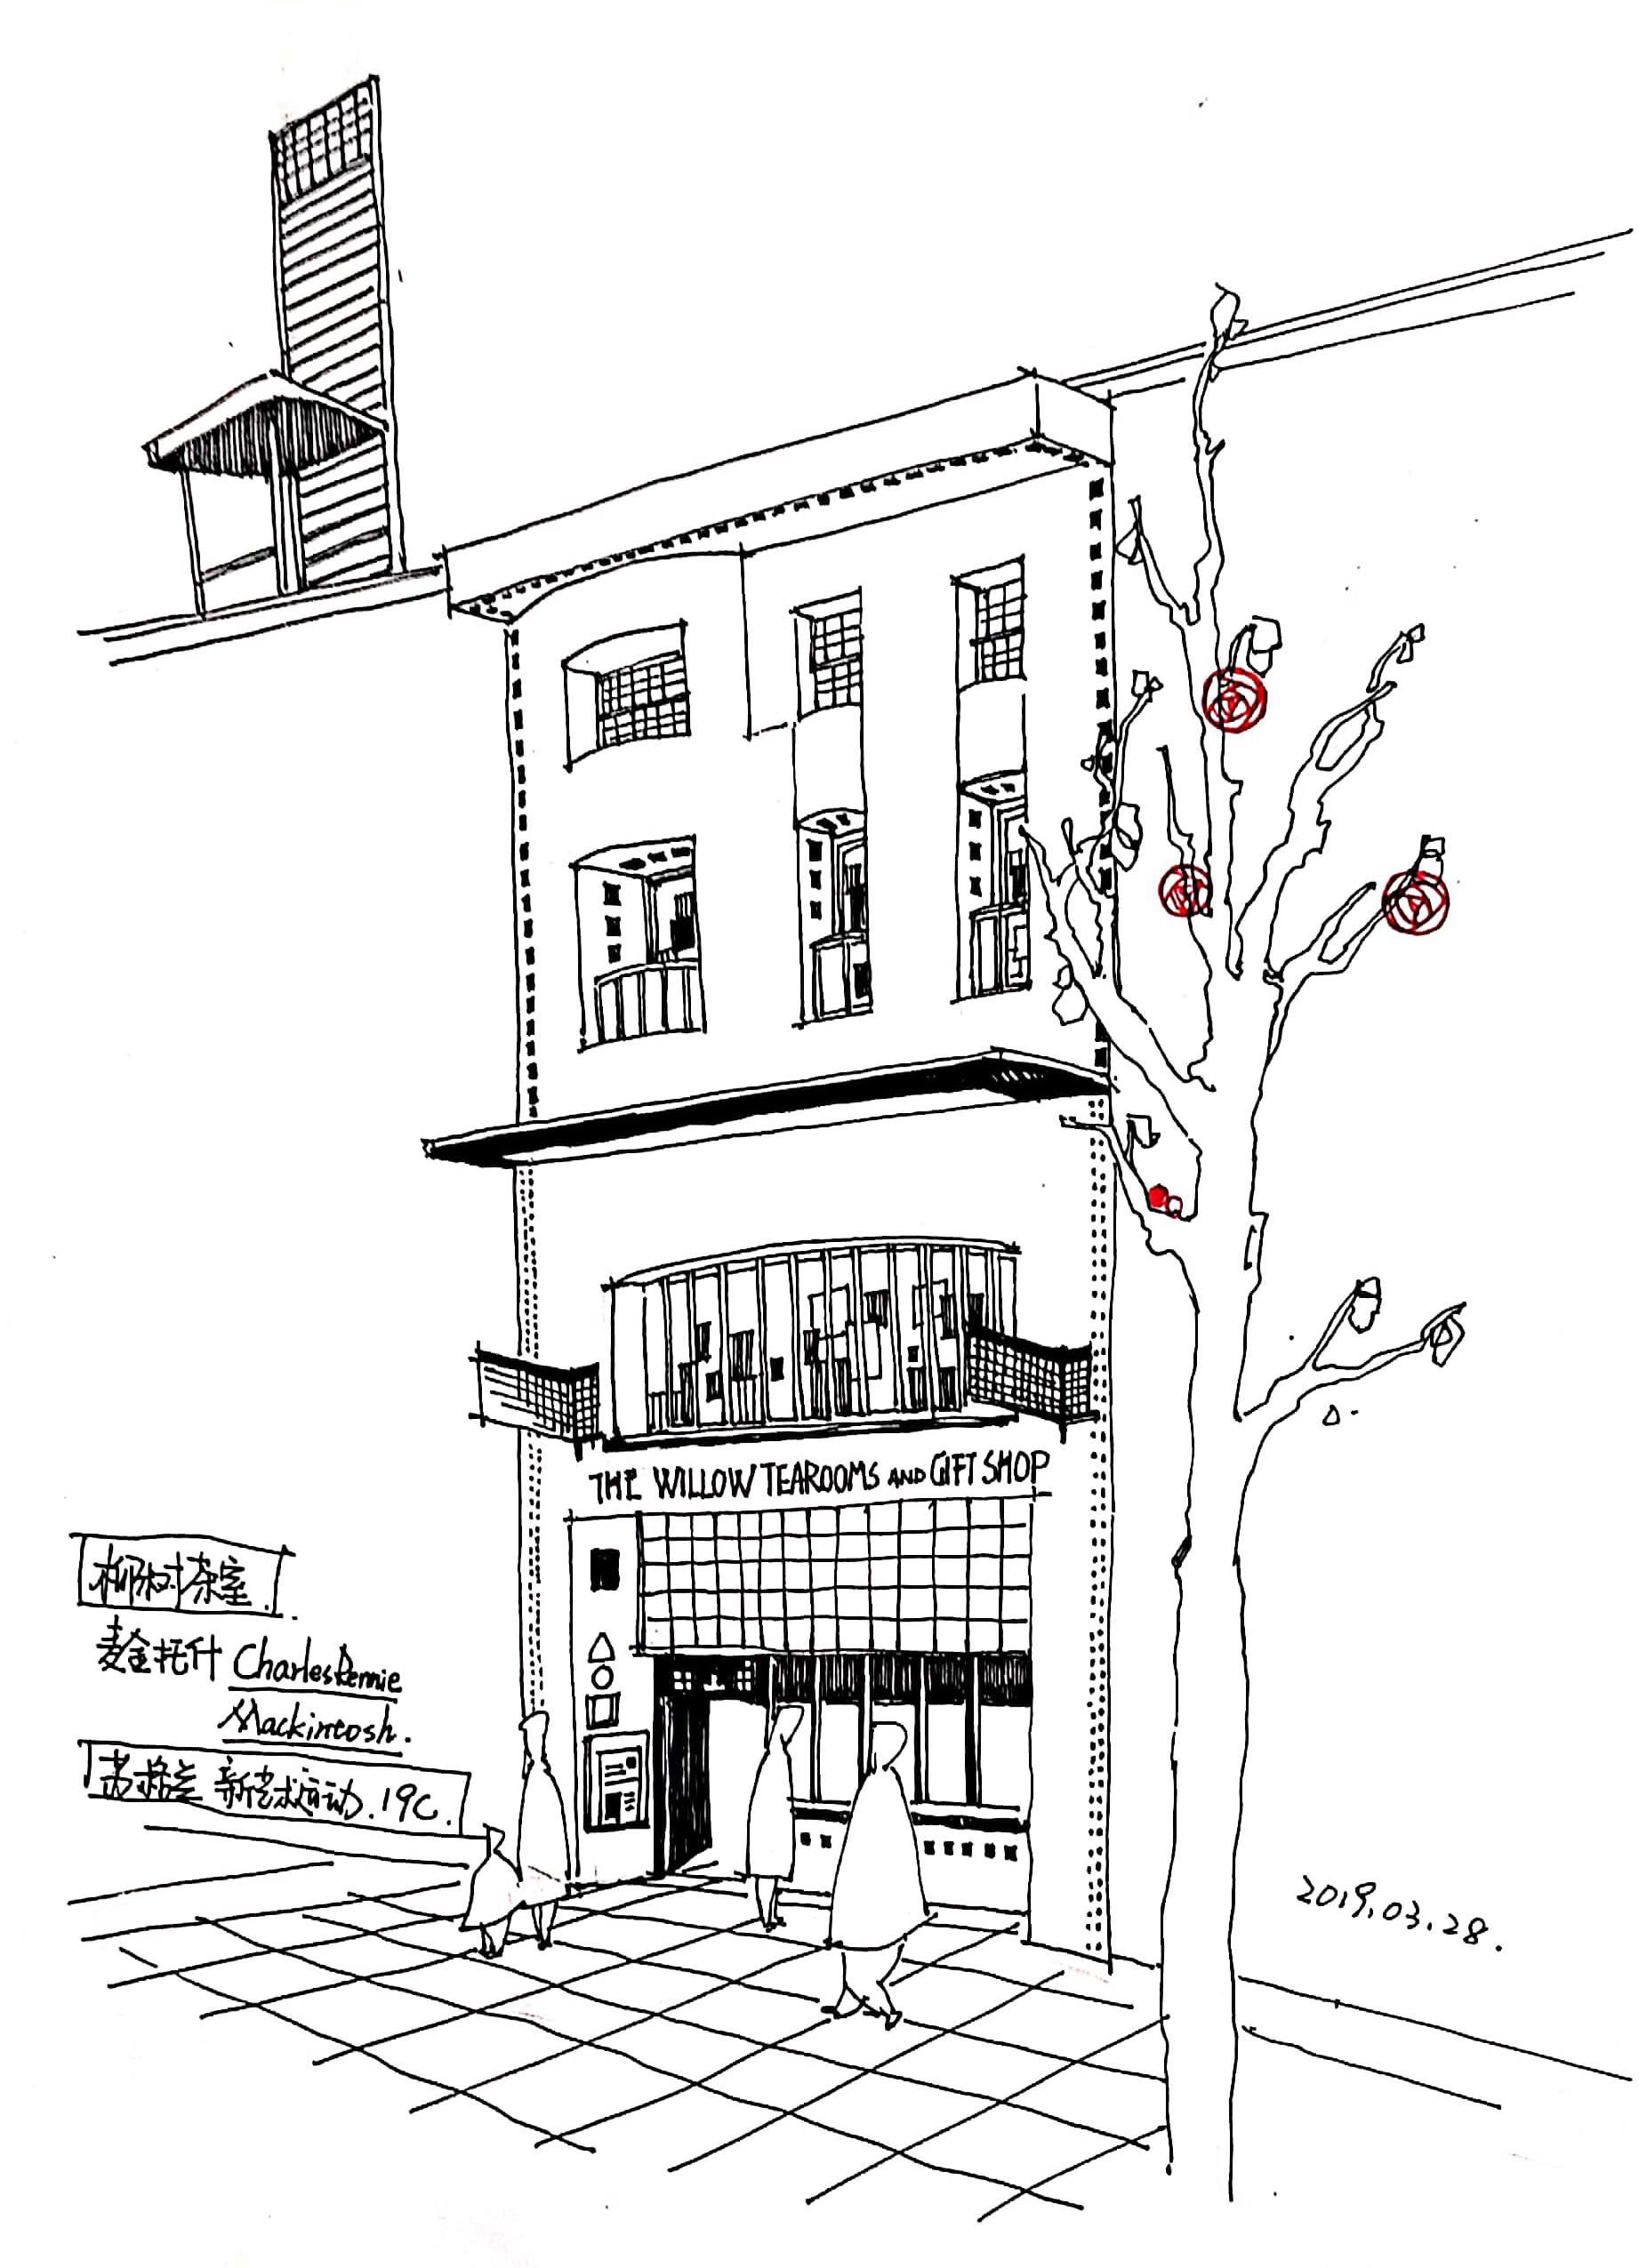 THE WILLOW TEAROOMS AND GIFT SHOP
柳树茶室.
麦金托什 Charles Rennie
Mackintosh.
苏格兰 新艺术运动.19C.
2019.03.28.